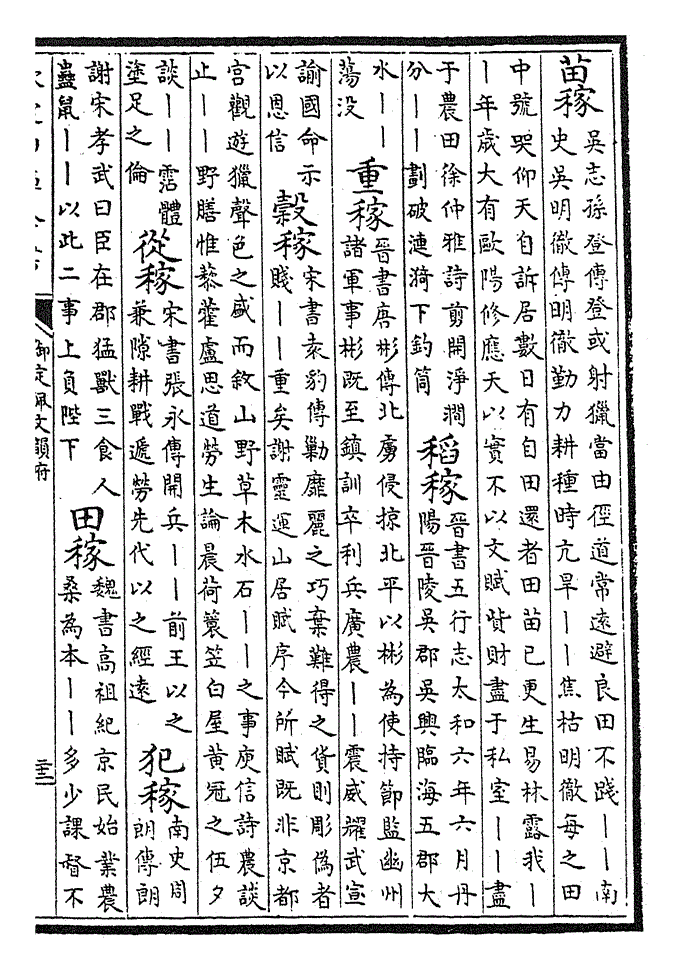 苗稼
吳志孫登傳登或射獵當由徑道常遠避良田不踐丨丨南
史吳明徹傳明徹勤力耕種時亢旱丨丨焦枯明徹每之田
中號哭仰天自訴居數日有自田還者田苗已更生易林露我丨
丨年歲大有歐陽修應天以實不以文賦貲財盡于私室丨丨盡
于農田徐仲雅詩剪開淨澗
分丨丨劃破漣漪下釣筒
稻稼
晉書五行志太和六年六月丹
陽晉陵吳郡吳興臨海五郡大
水丨丨
蕩没
重稼
晉書唐彬傳北虜侵掠北平以彬為使持節監幽州
諸軍事彬既至鎮訓卒利兵廣農丨丨震威耀武宣
諭國命示
以恩信
穀稼
宋書袁豹傳勦靡麗之巧棄難得之貨則彫偽者
賤丨丨重矣謝靈運山居賦序今所賦既非京都
宫觀遊獵聲色之盛而敘山野草木水石丨丨之事庾信詩農談
止丨丨野膳惟藜藿盧思道勞生論晨荷簑笠白屋黃冠之伍夕
談丨丨霑體
塗足之倫
從稼
宋書張永傳開兵丨丨前王以之
兼隙耕戰遞勞先代以之經遠
犯稼
南史周
朗傳朗
謝宋孝武曰臣在郡猛獸三食人
蟲鼠丨丨以此二事上負陛下
田稼
魏書高祖紀京民始業農
桑為本丨丨多少課督不
御定佩文韻府